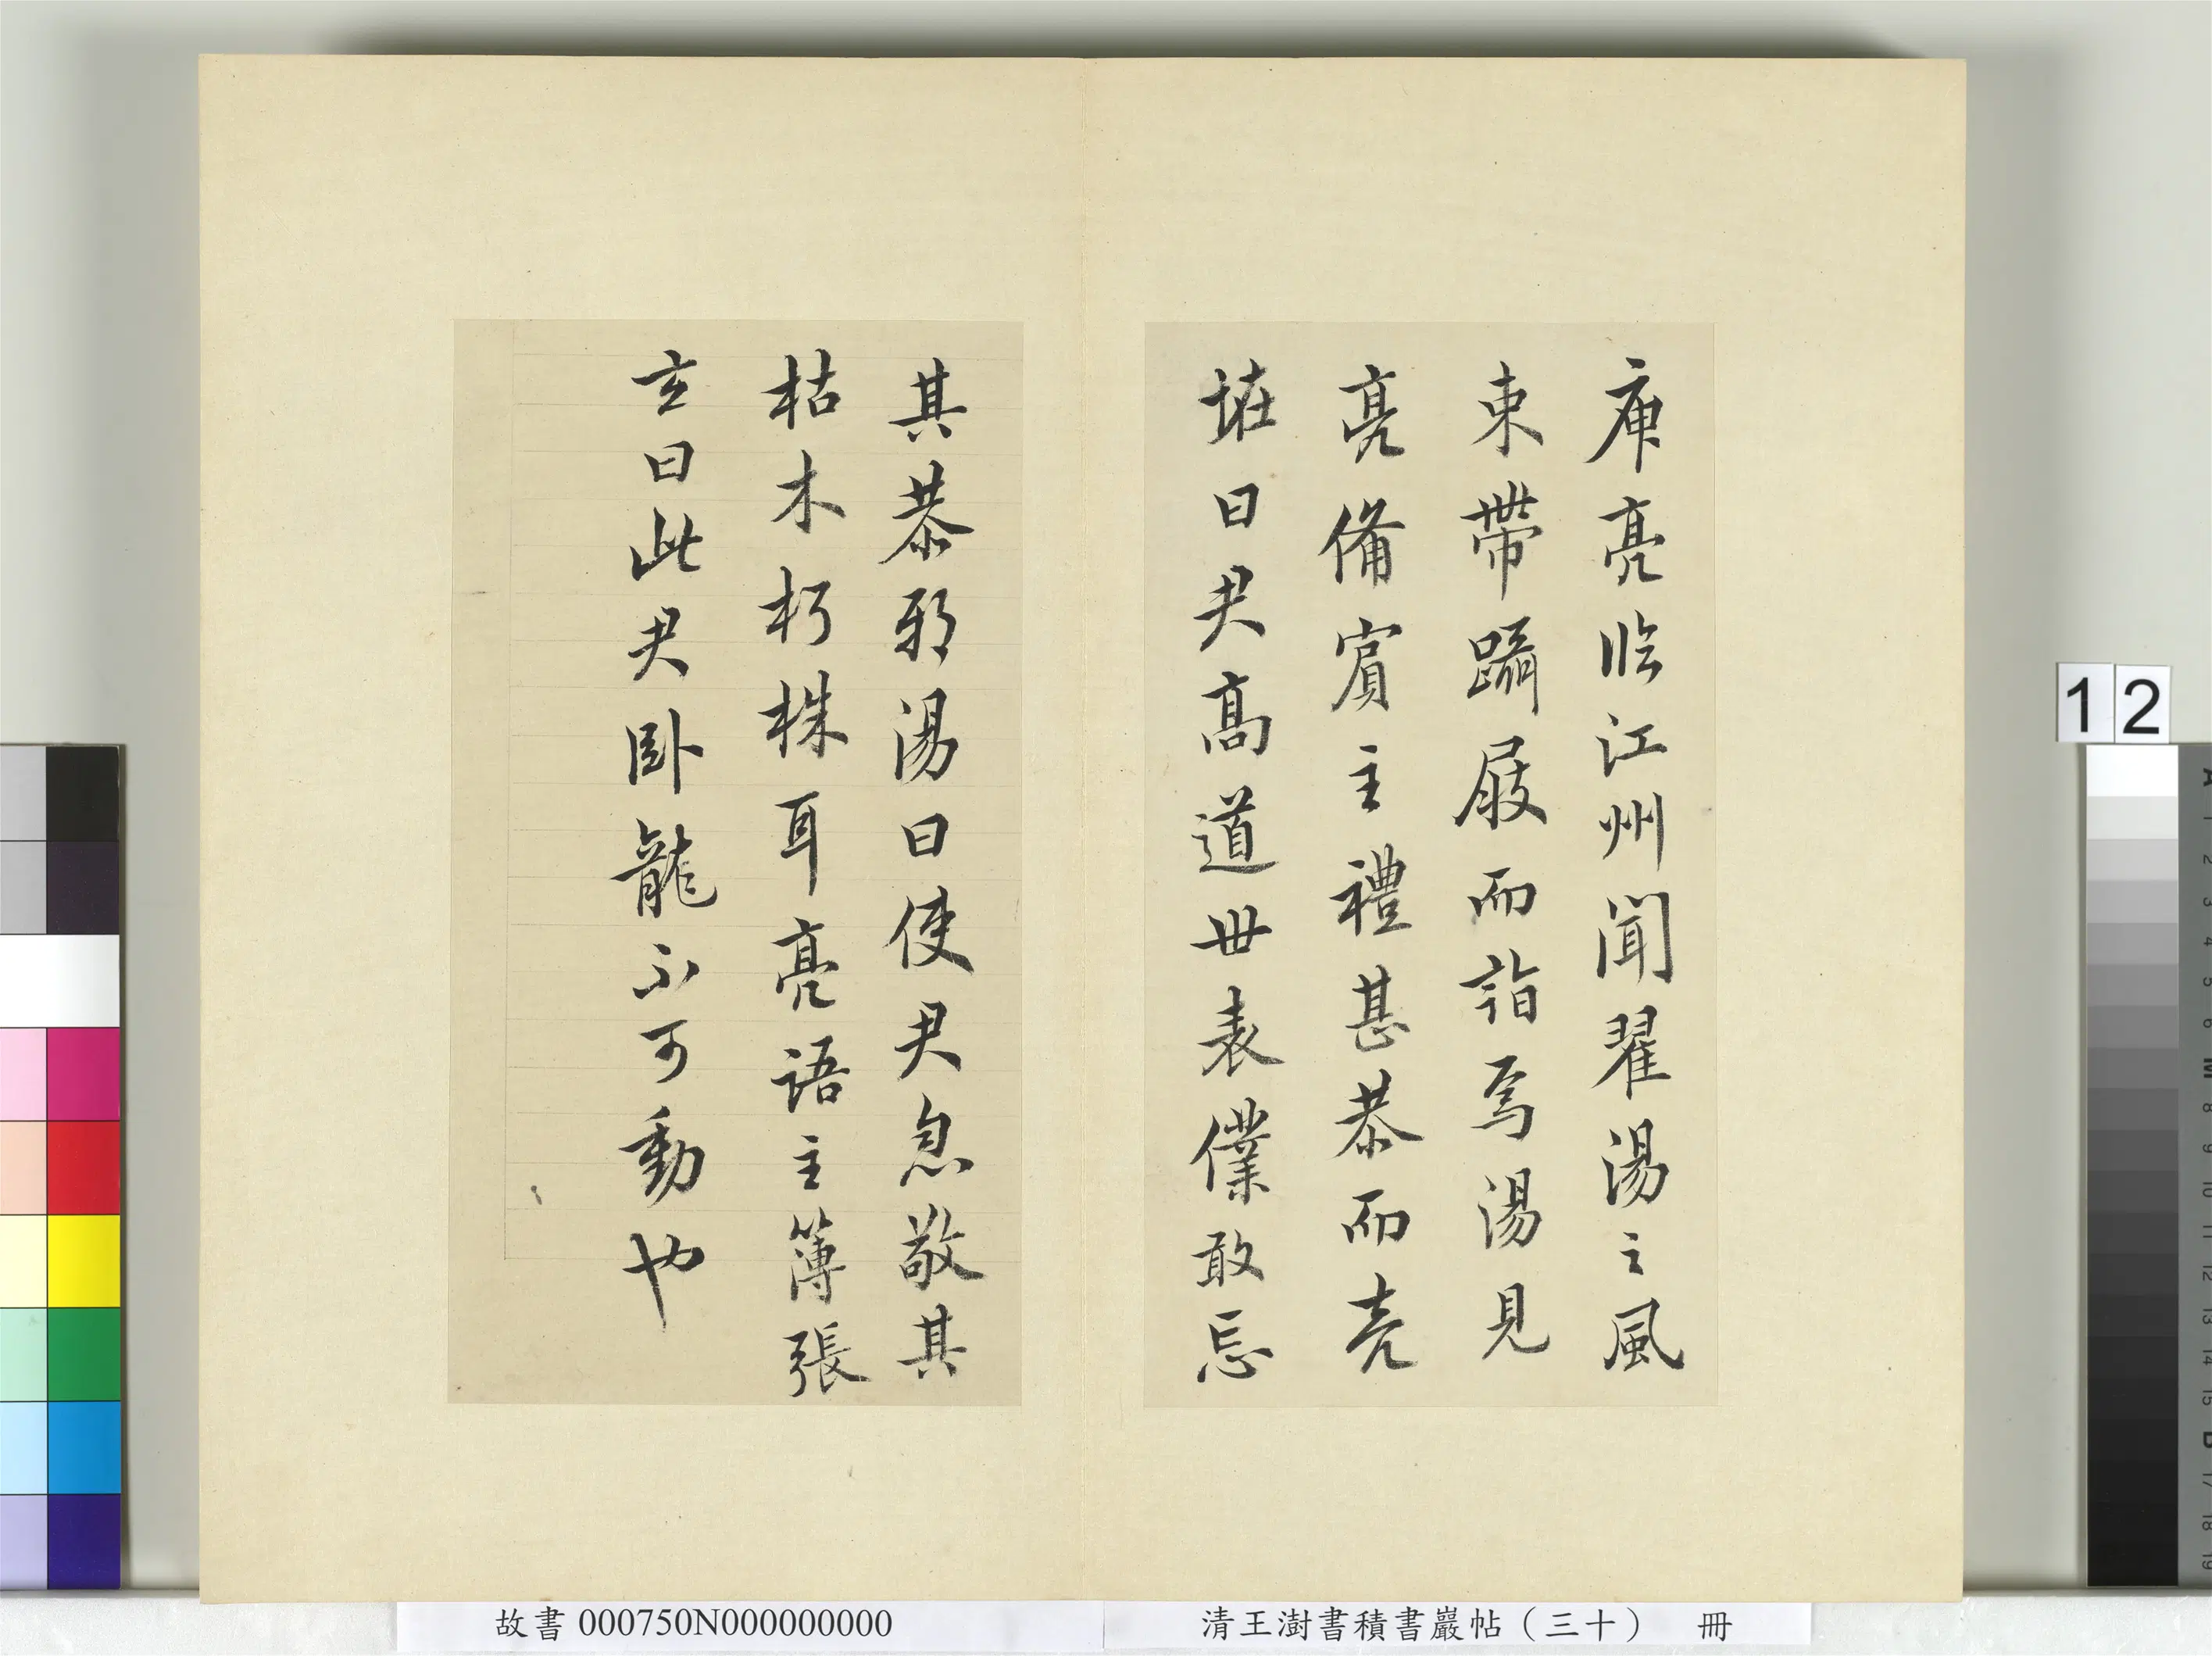 庾亮臨江州聞翟湯之風
束帶躡屐而詣焉湯見
亮備賓主禮甚恭而亮
曰君高道世表僕敢忘
其恭邪湯曰使君息敬其
枯木朽株耳亮語主簿張
玄曰此君卧龍不可動也
12
故書 000750N000000000
清王澍書積書巖帖（三十） 冊